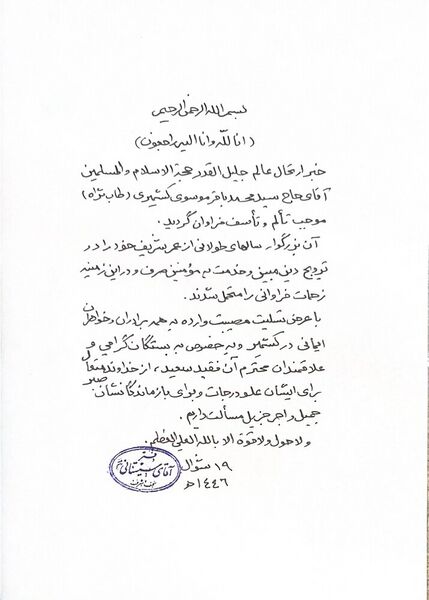 بسم الله الرحمن الرحیم
(انا لله وانا الیه راجعون)
خبر ارتحال عالم جلیل القدر حجة الاسلام والمسلمین
آقای حاج سید محمد باقر موسوی کشمیری (طاب ثراه)
موجب تألم و تأسف فراوان گردید.
آن بزرگوار سالهای طولانی از عمر شریف خود را در
ترویج دین مبین و خدمت به مؤمنین صرف و در این زمینه
زحمات فراوانی را متحمل شدند.
با عرض تسلیت مصیبت وارده به همه برادران و خواهران
ایمانی در کشمیر و به خصوص به بستگان گرامی و
علاقمندان محترم آن فقید سعید، از خداوند متعال
برای ایشان علو درجات و برای بازماندگانشان صبر
جمیل و اجر جزیل مسألت داریم.
ولا حول ولا قوة الا بالله العلی العظیم.
۱۹ شوال
۱۴۴۶ه
دفتر
آقای سیستانی
نجف اشرف